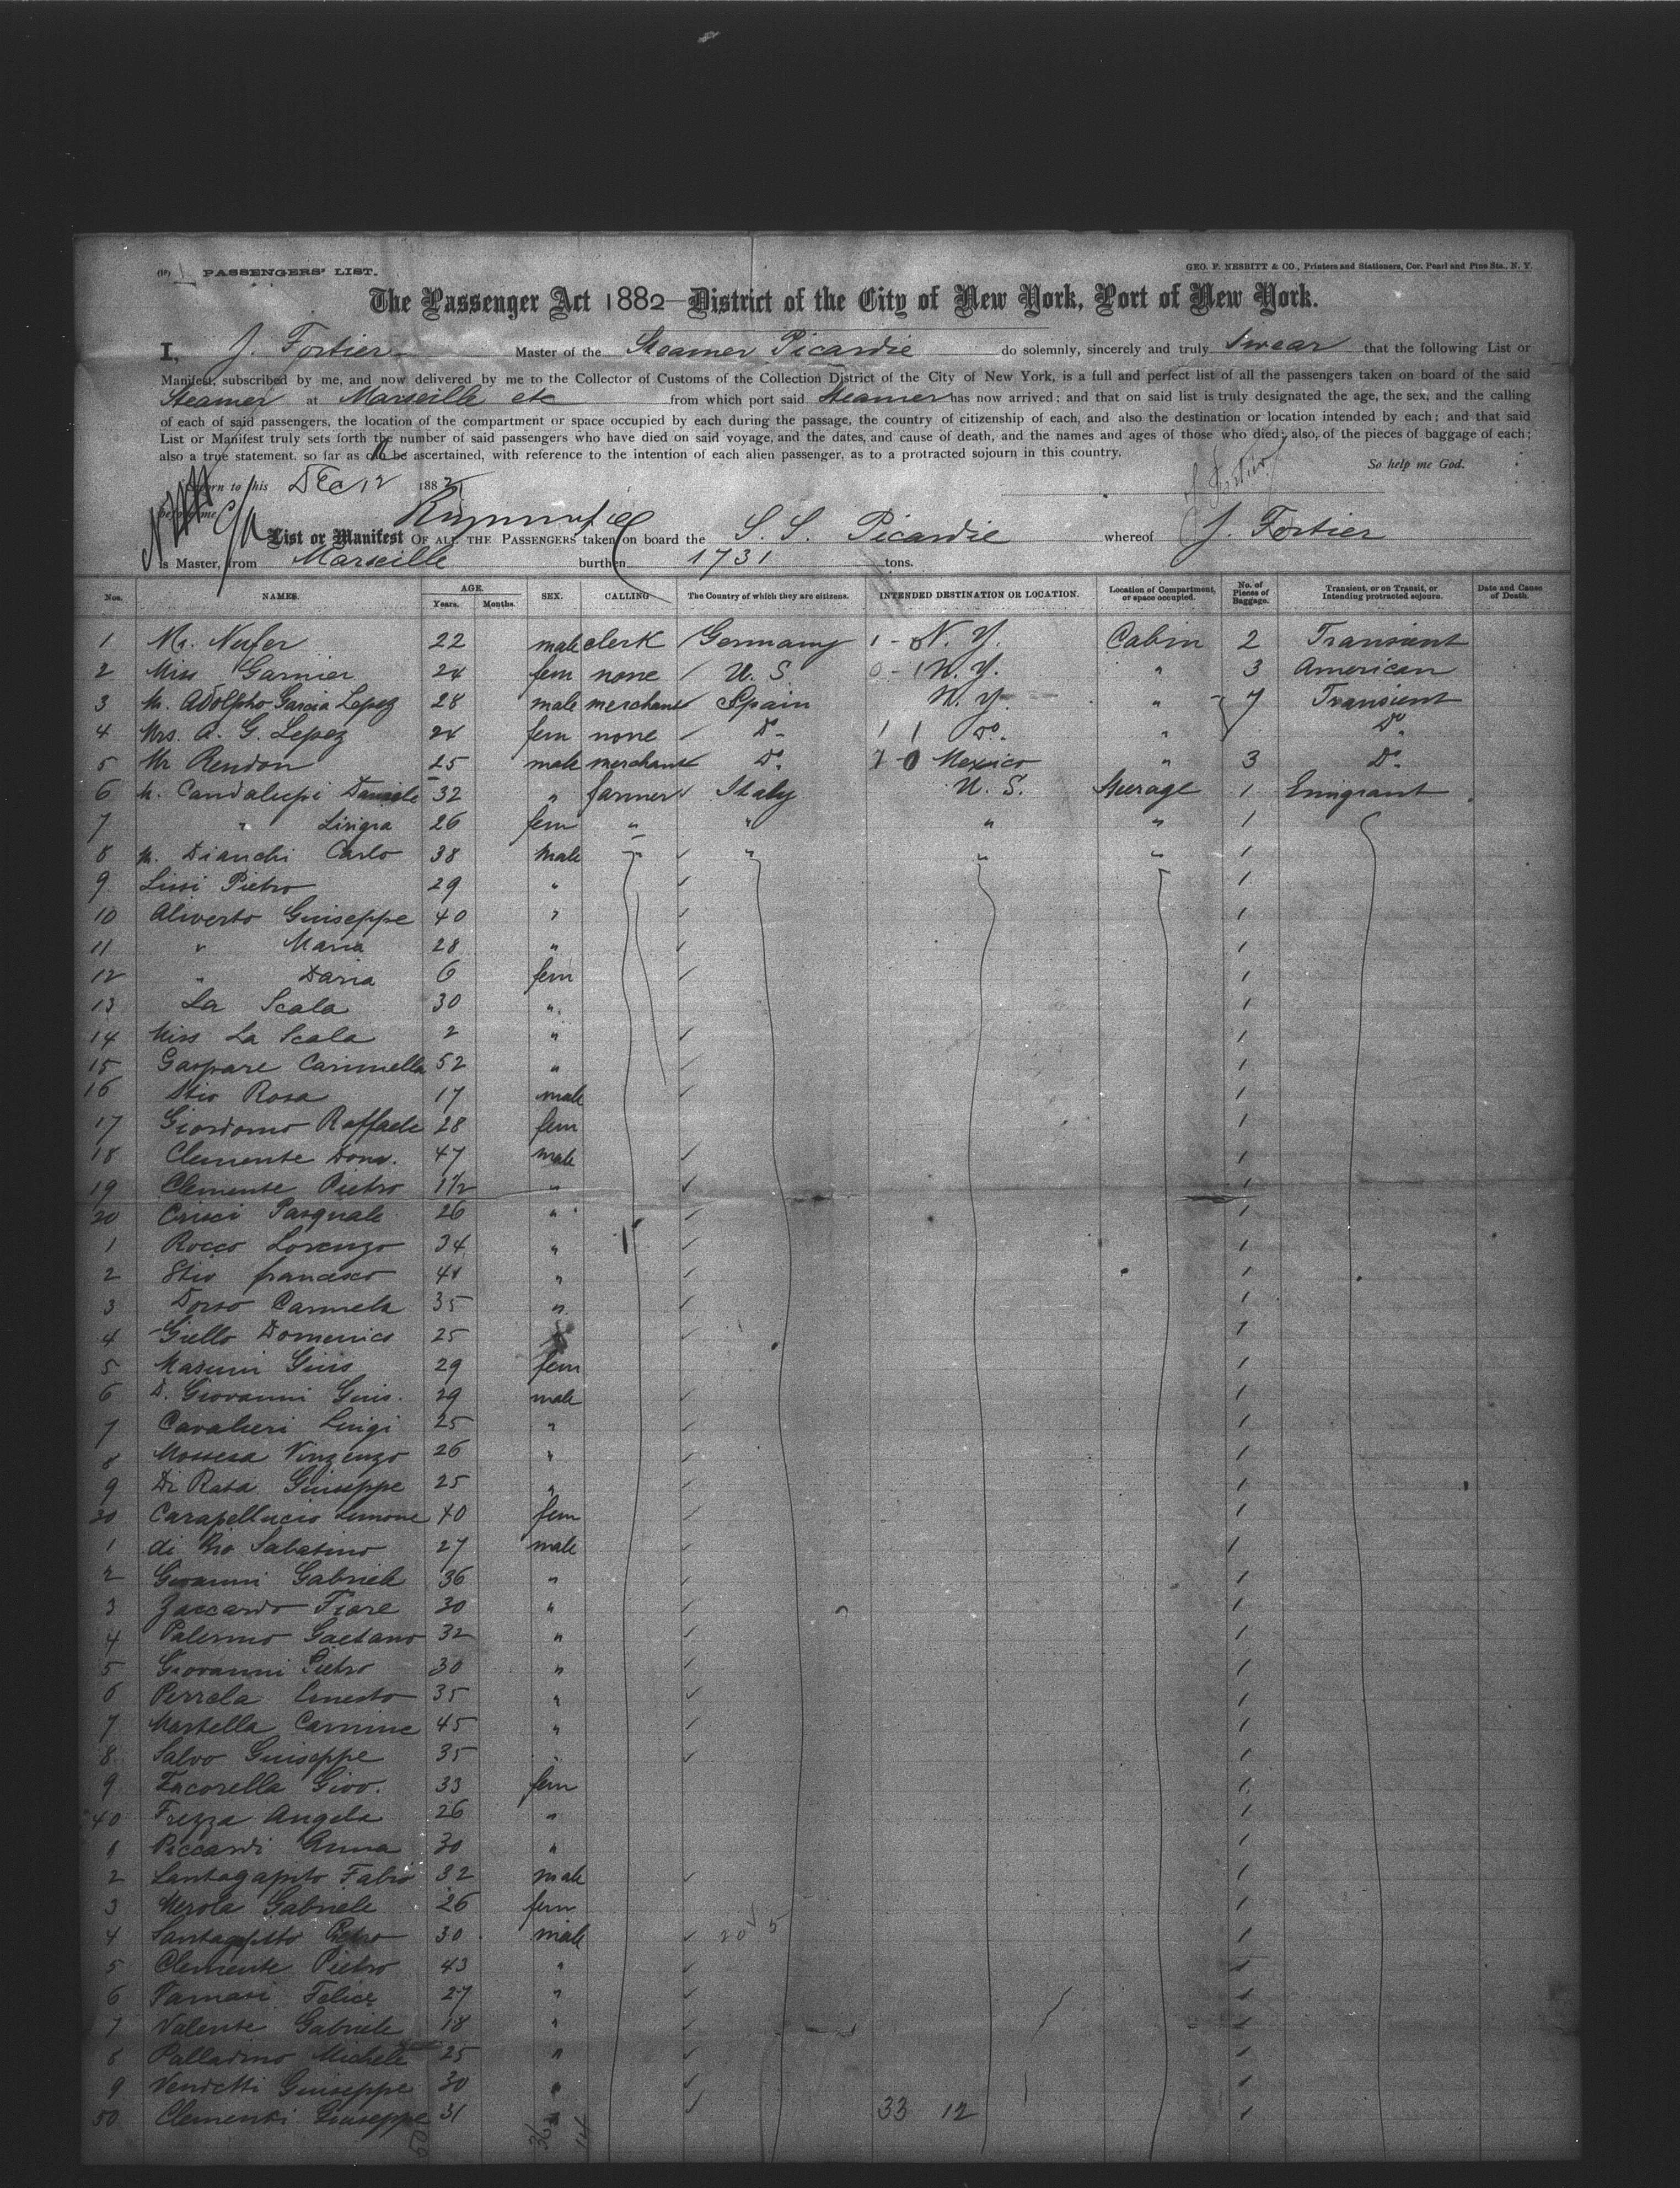 PASSENGERS' LIST.
GEO. F. NESBITT & CO., Printers and Stationers, Cor. Pearl and Pine Sts., N. Y.
The Passenger Act 1882 District of the City of New York, Port of New York.
I, J. Fortier Master of the Steamer Picardie do solemnly, sincerely and truly swear that the following List or
Manifest, subscribed by me, and now delivered by me to the Collector of Customs of the Collection District of the City of New York, is a full and perfect list of all the passengers taken on board of the said
Steamer at Marseille etc from which port said Steamer has now arrived; and that on said list is truly designated the age, the sex, and the calling
of each of said passengers, the location of the compartment or space occupied by each during the passage, the country of citizenship of each, and also the destination or location intended by each; and that said
List or Manifest truly sets forth the number of said passengers who have died on said voyage, and the dates, and cause of death, and the names and ages of those who died; also, of the pieces of baggage of each;
also a true statement, so far as can be ascertained, with reference to the intention of each alien passenger, as to a protracted sojourn in this country.
So help me God.
Sworn to this Dec 12 1882
J. Fortier
before me
List or Manifest OF ALL THE PASSENGERS taken on board the S. S. Picardie whereof J. Fortier
is Master, from Marseille burthen 1731 tons.
Nos. NAMES. AGE. Years. Months. SEX. CALLING The Country of which they are citizens. INTENDED DESTINATION OR LOCATION. Location of Compartment, or space occupied. No. of Pieces of Baggage. Transient, or on Transit, or Intending protracted sojourn. Date and Cause of Death.
1 Mr. Nufer 22 male clerk Germany 1 - 0 N. Y. Cabin 2 Transient
2 Miss Garnier 24 fem none U. S. 0 - 1 N. Y. " 3 American
3 M. Adolpho Garcia Lopez 28 male merchant Spain N. Y. " 7 Transient
4 Mrs. A. G. Lopez 24 fem none Do 1 1 Do. " Do
5 Mr Rendon 25 male merchant Do 1 0 Mexico " 3 Do
6 M. Candalupi Daniele 32 " farmer Italy U. S. Steerage 1 Emigrant
7 " 26 fem " " " " 1
8 M. Dianchi Carlo 38 male " " " " 1
9 Lissi Pietro 29 " 1
10 Aliverto Guiseppe 40 " 1
11 " Maria 28 " 1
12 " Daria 6 fem 1
13 La Scala 30 " 1
14 Miss La Scala 2 " 1
15 Gaspare Carmella 52 " 1
16 Stio Rosa 17 male 1
17 Giordomo Raffaele 28 fem 1
18 Clemente Dona. 47 male 1
19 Clemente Pietro 1½ " 1
20 Crisci Pasquale 26 " 1
1 Rocco Lorenzo 34 " 1
2 Stio francesco 41 " 1
3 Dorso Carmela 35 " 1
4 Giello Domenico 25 1
5 Masuni Guis 29 fem 1
6 D. Giovanni Guis. 29 male 1
7 Cavalieri Luigi 25 " 1
8 Mossesa Vinzenzo 26 " 1
9 Di Rasa Giuseppe 25 " 1
30 Carapellucio Simone 40 fem 1
1 di Rio Sabatino 27 male 1
2 Giovanni Gabriele 36 " 1
3 Zaccardo Fiore 30 " 1
4 Palermo Gaetano 32 " 1
5 Giovanni Pietro 30 " 1
6 Perrela Ernesto 35 " 1
7 Martella Carmine 45 " 1
8 Salvo Guiseppe 35 " 1
9 Giov. 33 fem 1
40 Frezza Angela 26 " 1
1 Piccardi Anna 30 " 1
2 Santagapito Fabio 32 male 1
3 Merola Gabriele 26 fem 1
4 Santagapito Pietro 30 male 20 5 1
5 Clemente Pietro 43 " 1
6 Tamasi Felice 27 " 1
7 Valente Gabriele 18 " 1
8 Palladino Michele 25 " 1
9 Venditti Giuseppe 30 " 1
50 Clementi Giuseppe 31 " 33 12 1
50 36 14